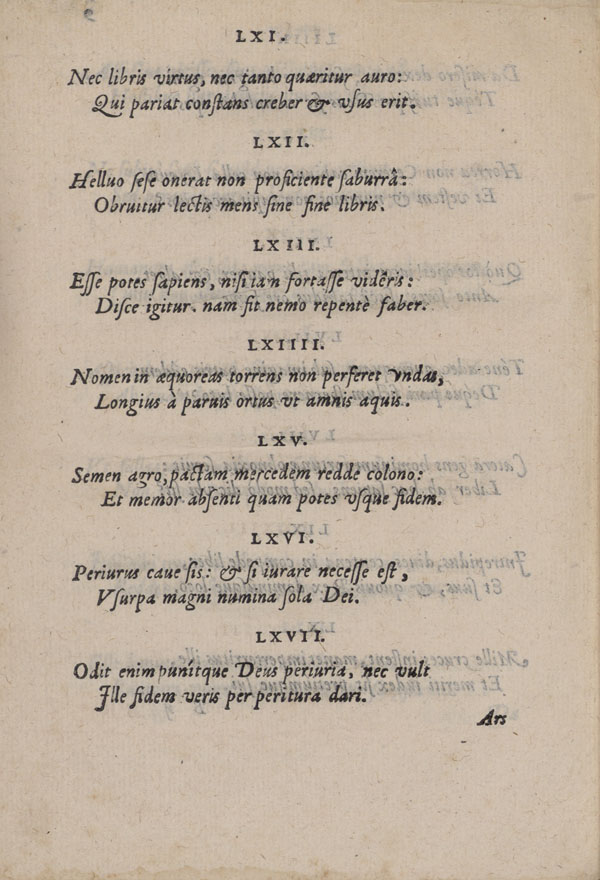 LXI.
Nec libris virtus, nec tanto quæritur auro:
Qui pariat conſtans creber & vſus erit.
LXII.
Helluo ſeſe onerat non proficiente ſaburrâ:
Obruitur lectis mens ſine fine libris.
LXIII.
Eſſe potes ſapiens, niſi iam fortaſſe vidêris:
Diſce igitur. nam fit nemo repentè faber.
LXIIII.
Nomen in æquoreas torrens non perferet vndas,
Longius à paruis ortus vt amnis aquis.
LXV.
Semen agro, pactam mercedem redde colono:
Et memor abſenti quam potes vſque fidem.
LXVI.
Periurus caue ſis: & ſi iurare neceſſe eſt,
Vſurpa magni numina ſola Dei.
LXVII.
Odit enim punítque Deus periuria, nec vult
Ille fidem veris per peritura dari.
Ars